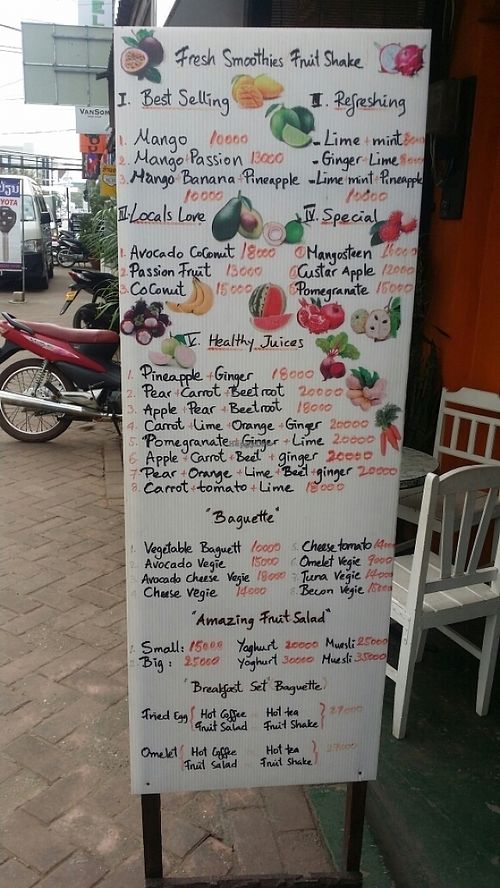 VANSOM
TOYOTA
Fresh Smoothies Fruit Shake
I. Best Selling
1. Mango 10000
2. Mango+Passion 13000
3. Mango+Banana+Pineapple
10000
II. Refreshing
- Lime+mint 8000
- Ginger+Lime 8000
- Lime+mint+Pineapple
10000
III Locals Love
1. Avocado Coconut 18000
2. Passion Fruit 13000
3. Coconut 15000
IV. Special
① Mangosteen
② Custar Apple 12000
③ Pomegranate 15000
V. Healthy Juices
1. Pineapple+Ginger 18000
2. Pear+Carrot+Beetroot 20000
3. Apple+Pear+Beetroot 18000
4. Carrot+Lime+Orange+Ginger 20000
5. Pomegranate+Ginger+Lime 20000
6. Apple+Carrot+Beet+ginger 20000
7. Pear+Orange+Lime+Beet+ginger 20000
8. Carrot+tomato+Lime 18000
"Baguette"
1. Vegetable Baguett 10000
2. Avocado Vegie 15000
3. Avocado Cheese Vegie 18000
4. Cheese Vegie 14000
5. Cheese tomato 14000
6. Omelet Vegie 9000
7. Tuna Vegie 14000
8. Becon Vegie
"Amazing Fruit Salad"
1. Small: 15000 Yoghurt 20000 Muesli 25000
2. Big: 25000 Yoghurt 30000 Muesli 35000
"Breakfast Set" Baguette
Fried Egg { Hot Coffee - Hot tea } 27000
Fruit Salad - Fruit Shake
Omelet { Hot Coffee - Hot tea } 27000
Fruit Salad - Fruit Shake